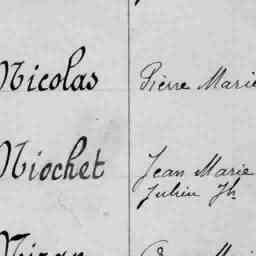 Nicolas Pierre Marie
Niochet Jean Marie
Julien Jh